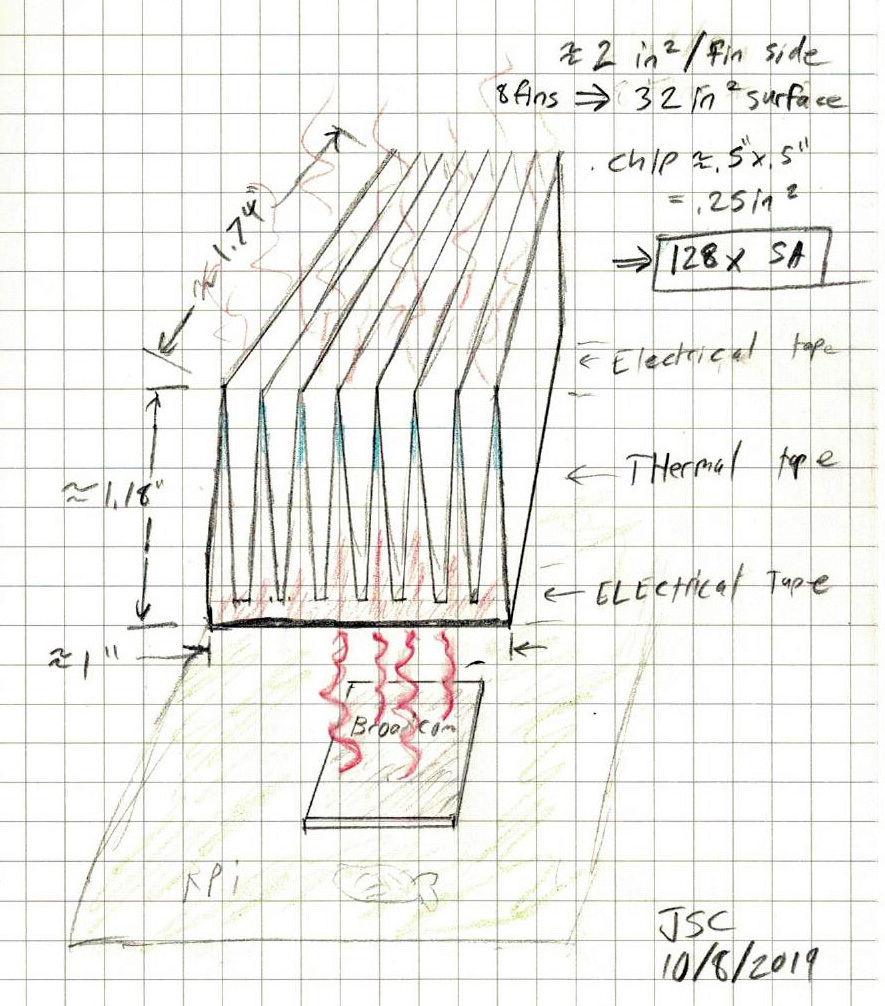 ≈ 2 in²/fin side
8 fins ⇒ 32 in² surface
. chip ≈ .5"x.5"
= .25in²
⇒ 128x SA
≈ 1.74"
← Electrical tape
← THermal tape
≈ 1.18"
← ELEctrical Tape
≈ 1"
Broadcom
RPi
JSC
10/8/2019